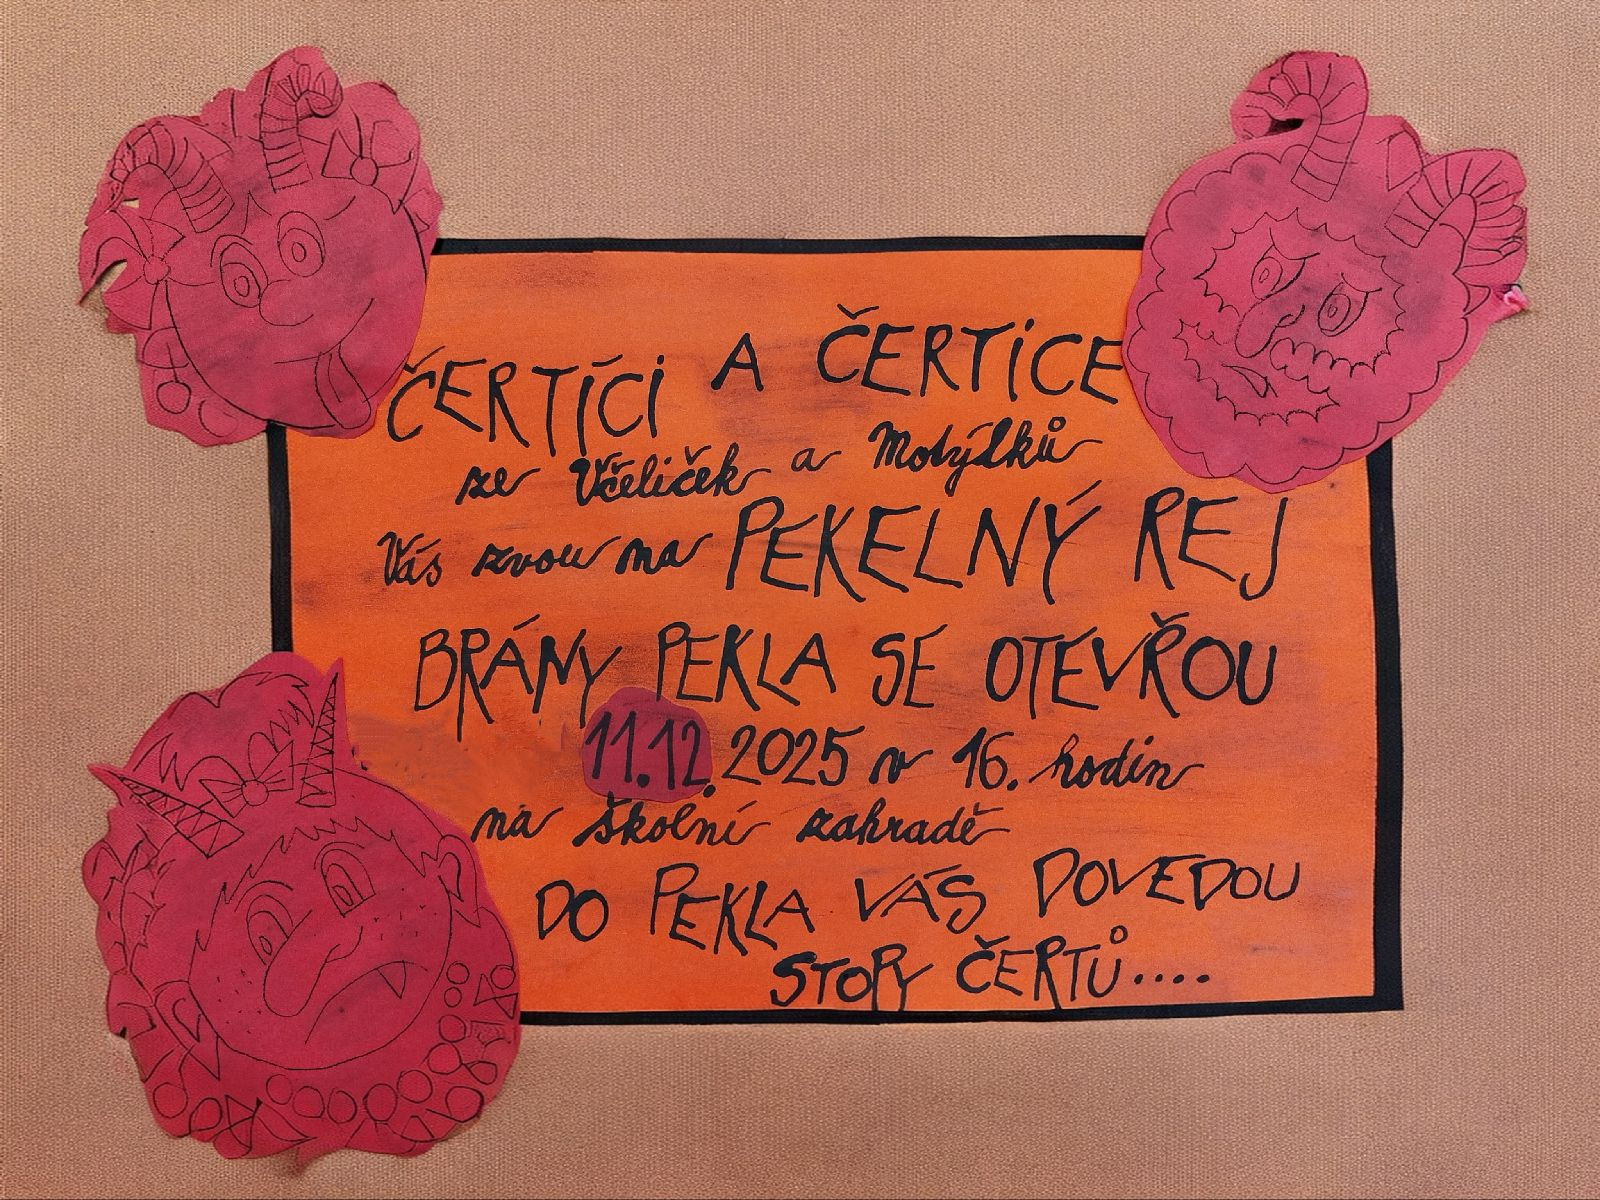 ČERTÍCI A ČERTICE
ze Včeliček a Motýlků
Vás zvou na PEKELNÝ REJ
BRÁNY PEKLA SE OTEVŘOU
11.12.2025 v 16. hodin
na školní zahradě
DO PEKLA VÁS DOVEDOU
STOPY ČERTŮ....